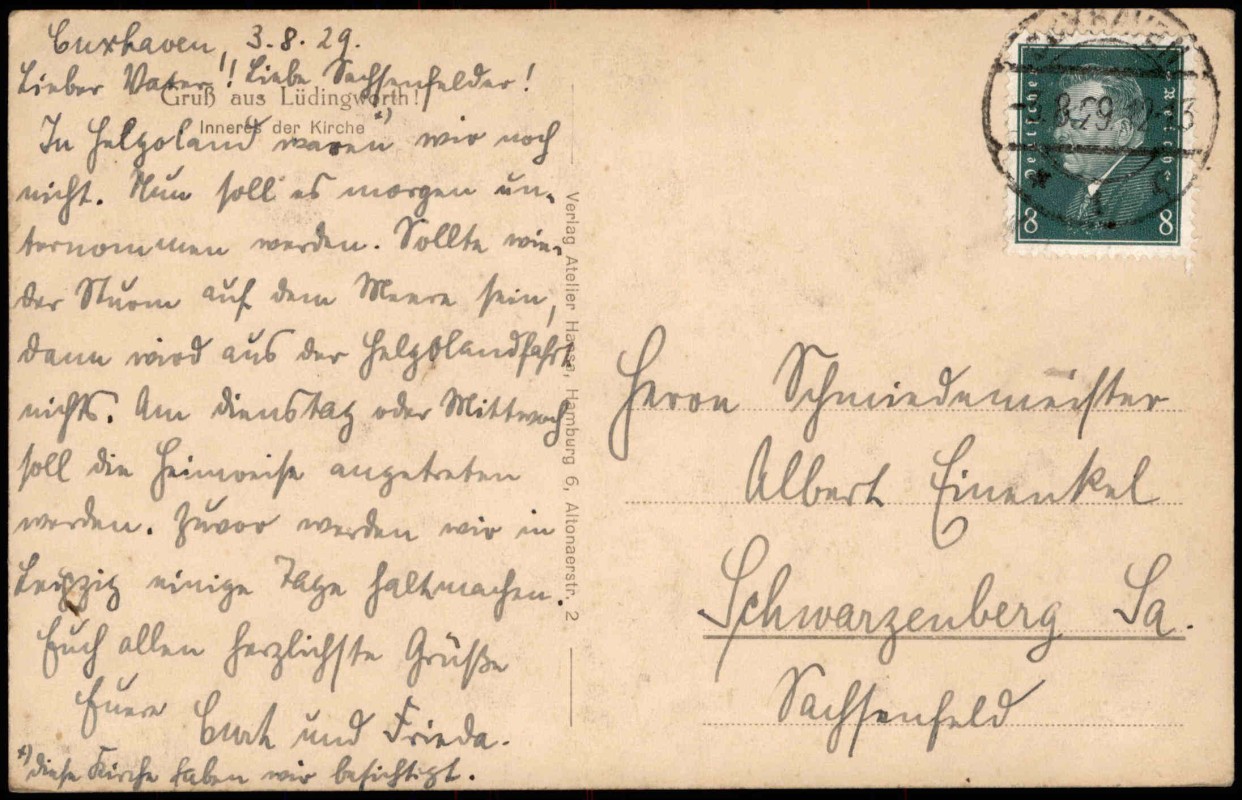 Cuxhaven, 3.8.29.
Lieber Vater! Liebe Sachsenfelder!
Gruß aus Lüdingworth!
Inneres der Kirche x)
In Helgoland waren wir noch
nicht. Nun soll es morgen un-
ternommen werden. Sollte wie-
der Sturm auf dem Meere sein,
dann wird aus der Helgolandfahrt
nichts. Am Dienstag oder Mittwoch
soll die Heimreise angetreten
werden. Zuvor werden wir in
Leipzig einige Tage haltmachen.
Euch allen herzlichste Grüße
Euere
Curt und Frieda.
x) diese Kirche haben wir besichtigt.
Verlag Atelier Hansa, Hamburg 6, Altonaerstr. 2
CUXHAVEN
8.29 12-13
Deutsches Reich
8 8
Herrn Schmiedemeister
Albert Einenkel
Schwarzenberg Sa.
Sachsenfeld